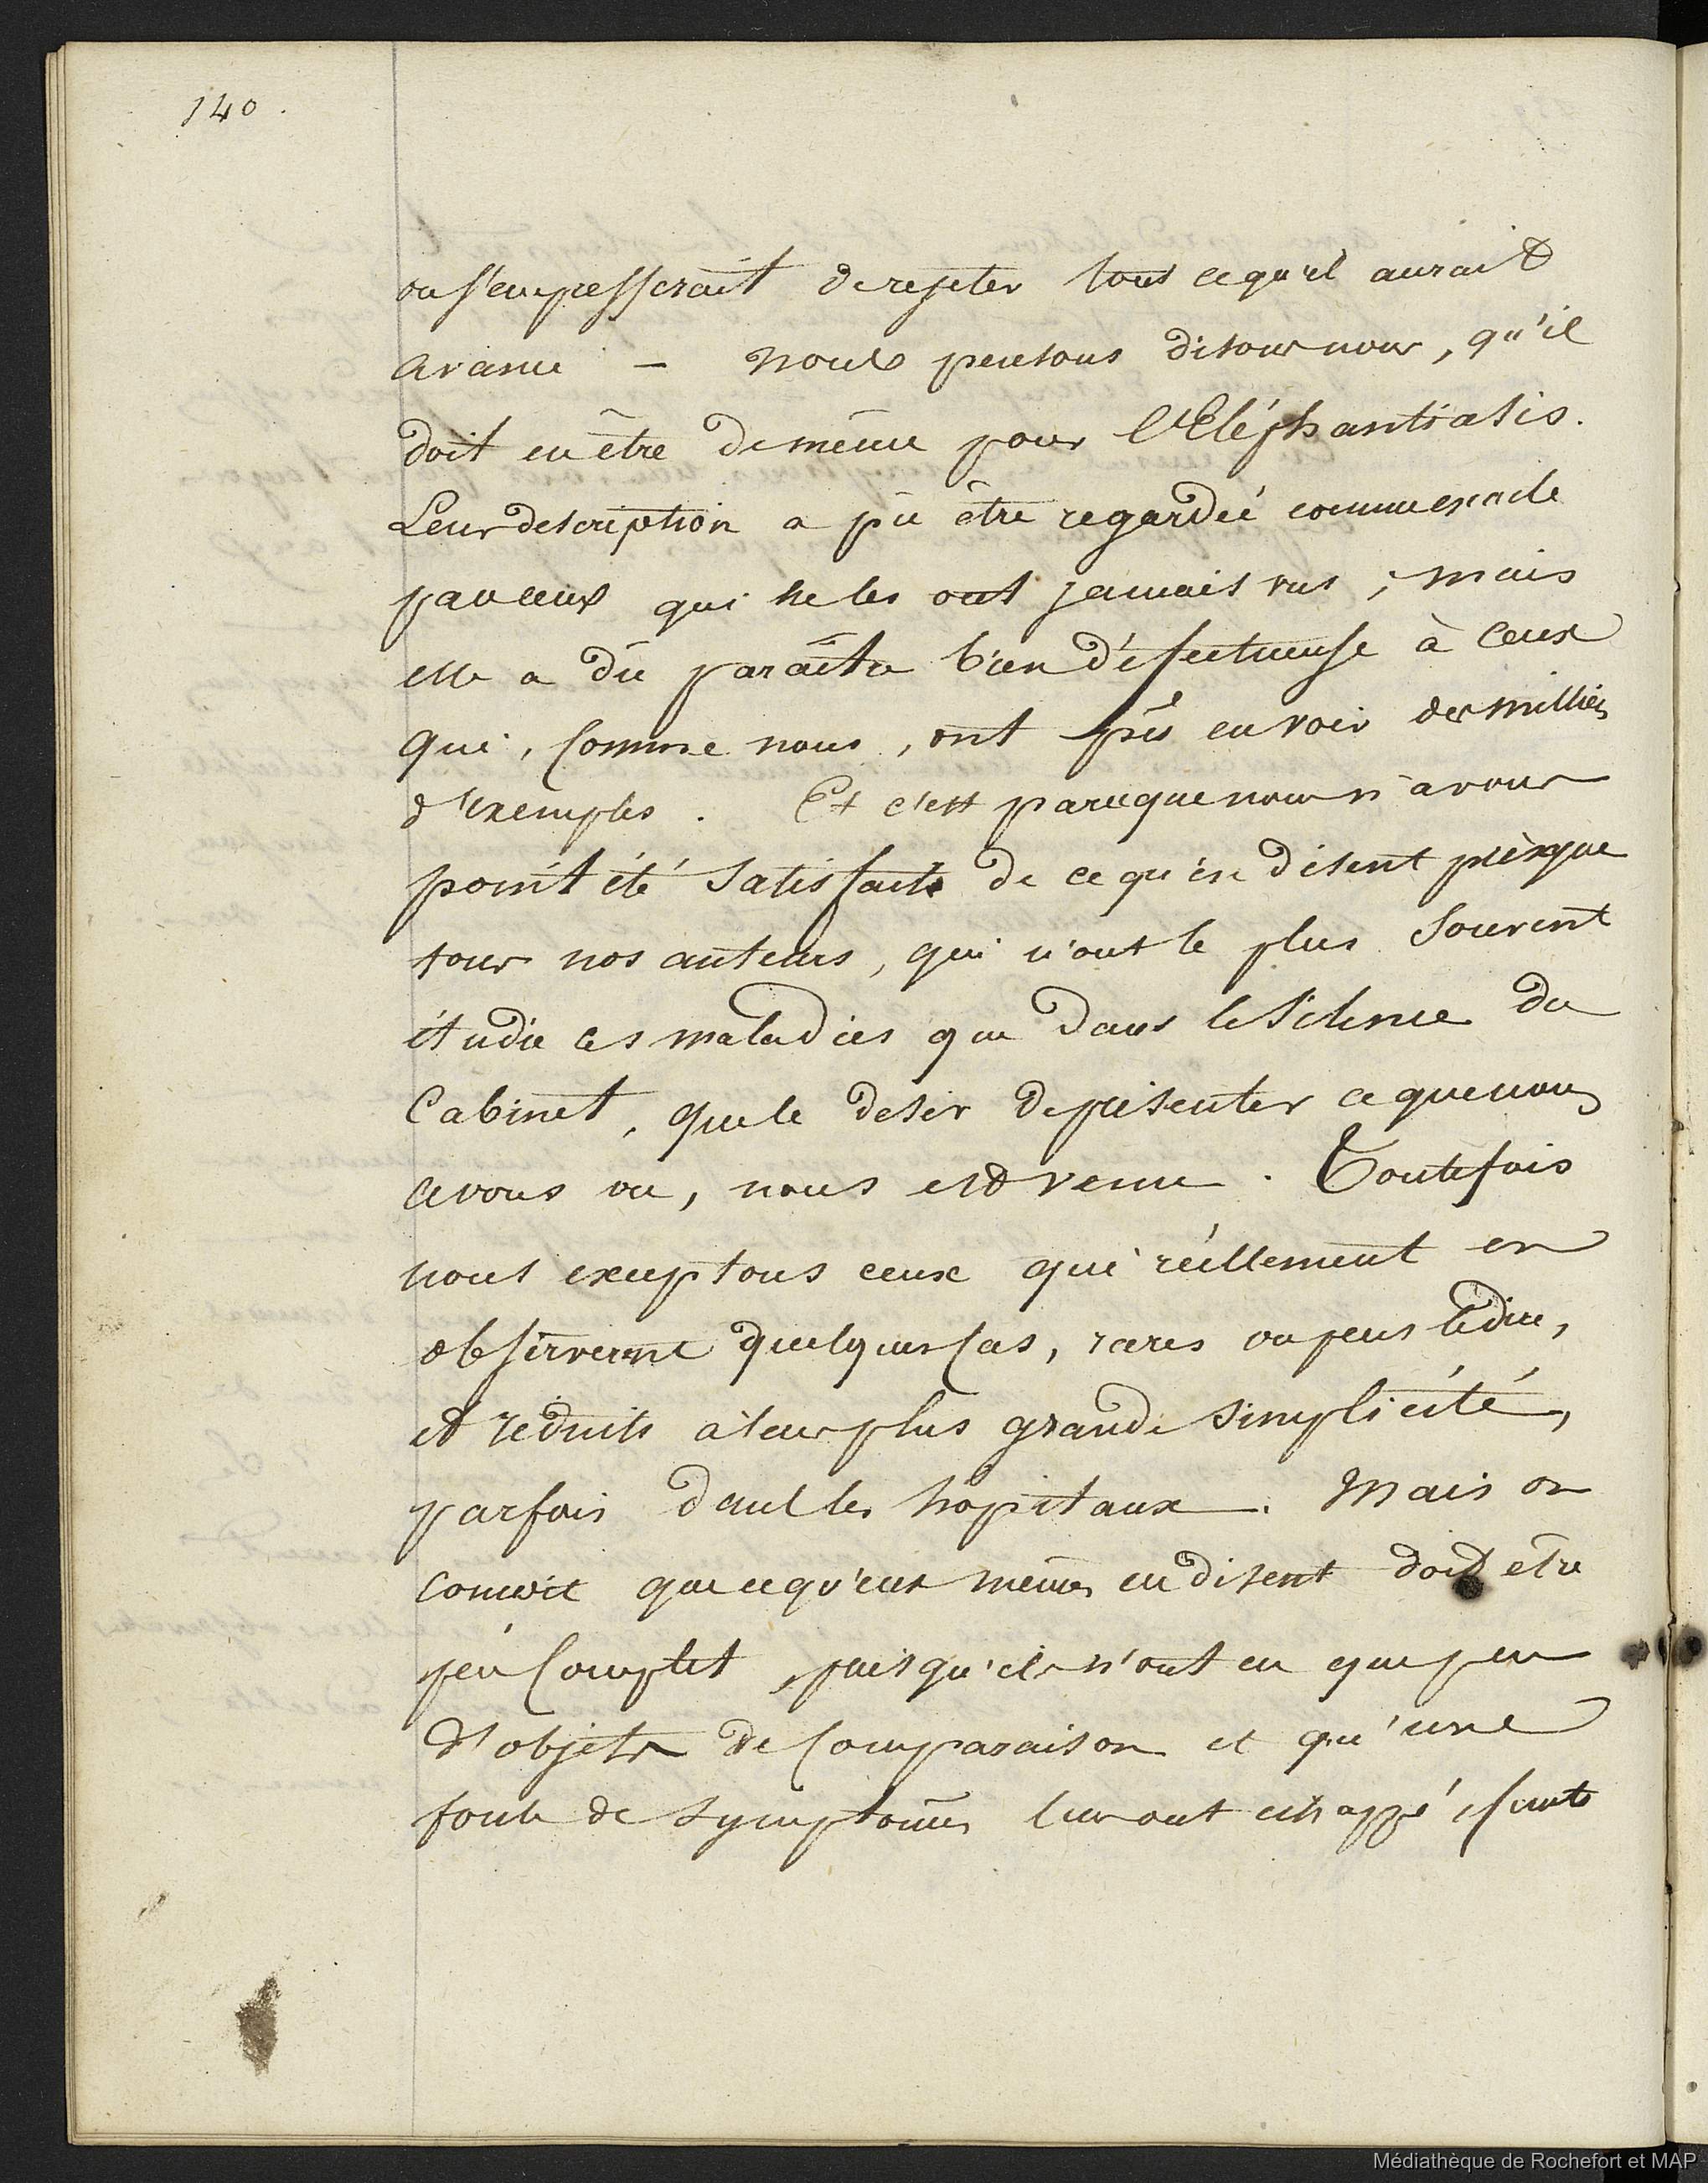 140.
on s'empesserait de rejeter tout ce qu'il aurait
avancé — nous pensons disons nous, qu'il
doit en être de même pour l'Eléphantiasis.
Leur description a pû être regardée comme exacte
par ceux qui ne les ont jamais vus, mais
elle a dû paraître bien défectueuse à ceux
qui, comme nous, ont pû en voir des milliers
d'exemples. Et c'est parceque nous n'avons
point été satisfaits de ce qu'en disent présque
tous nos auteurs, qui n'ont le plus souvent
étudié ces maladies que dans le silence du
Cabinet, que le desir de présenter ce que nous
avons vu, nous est venu. Toutefois
nous exceptons ceux qui réellement en
observerent quelques cas, rares on peus le dire,
et réduits à leur plus grande simplicité,
parfois dans les hôpitaux. Mais on
concoit que ce qu'eux mêmes en disent doit etre
peu complet, puisqu'ils n'ont eu que peu
d'objets de comparaison et qu'une
foule de symptômes leur ont echappé, faute
Médiathèque de Rochefort et MAP